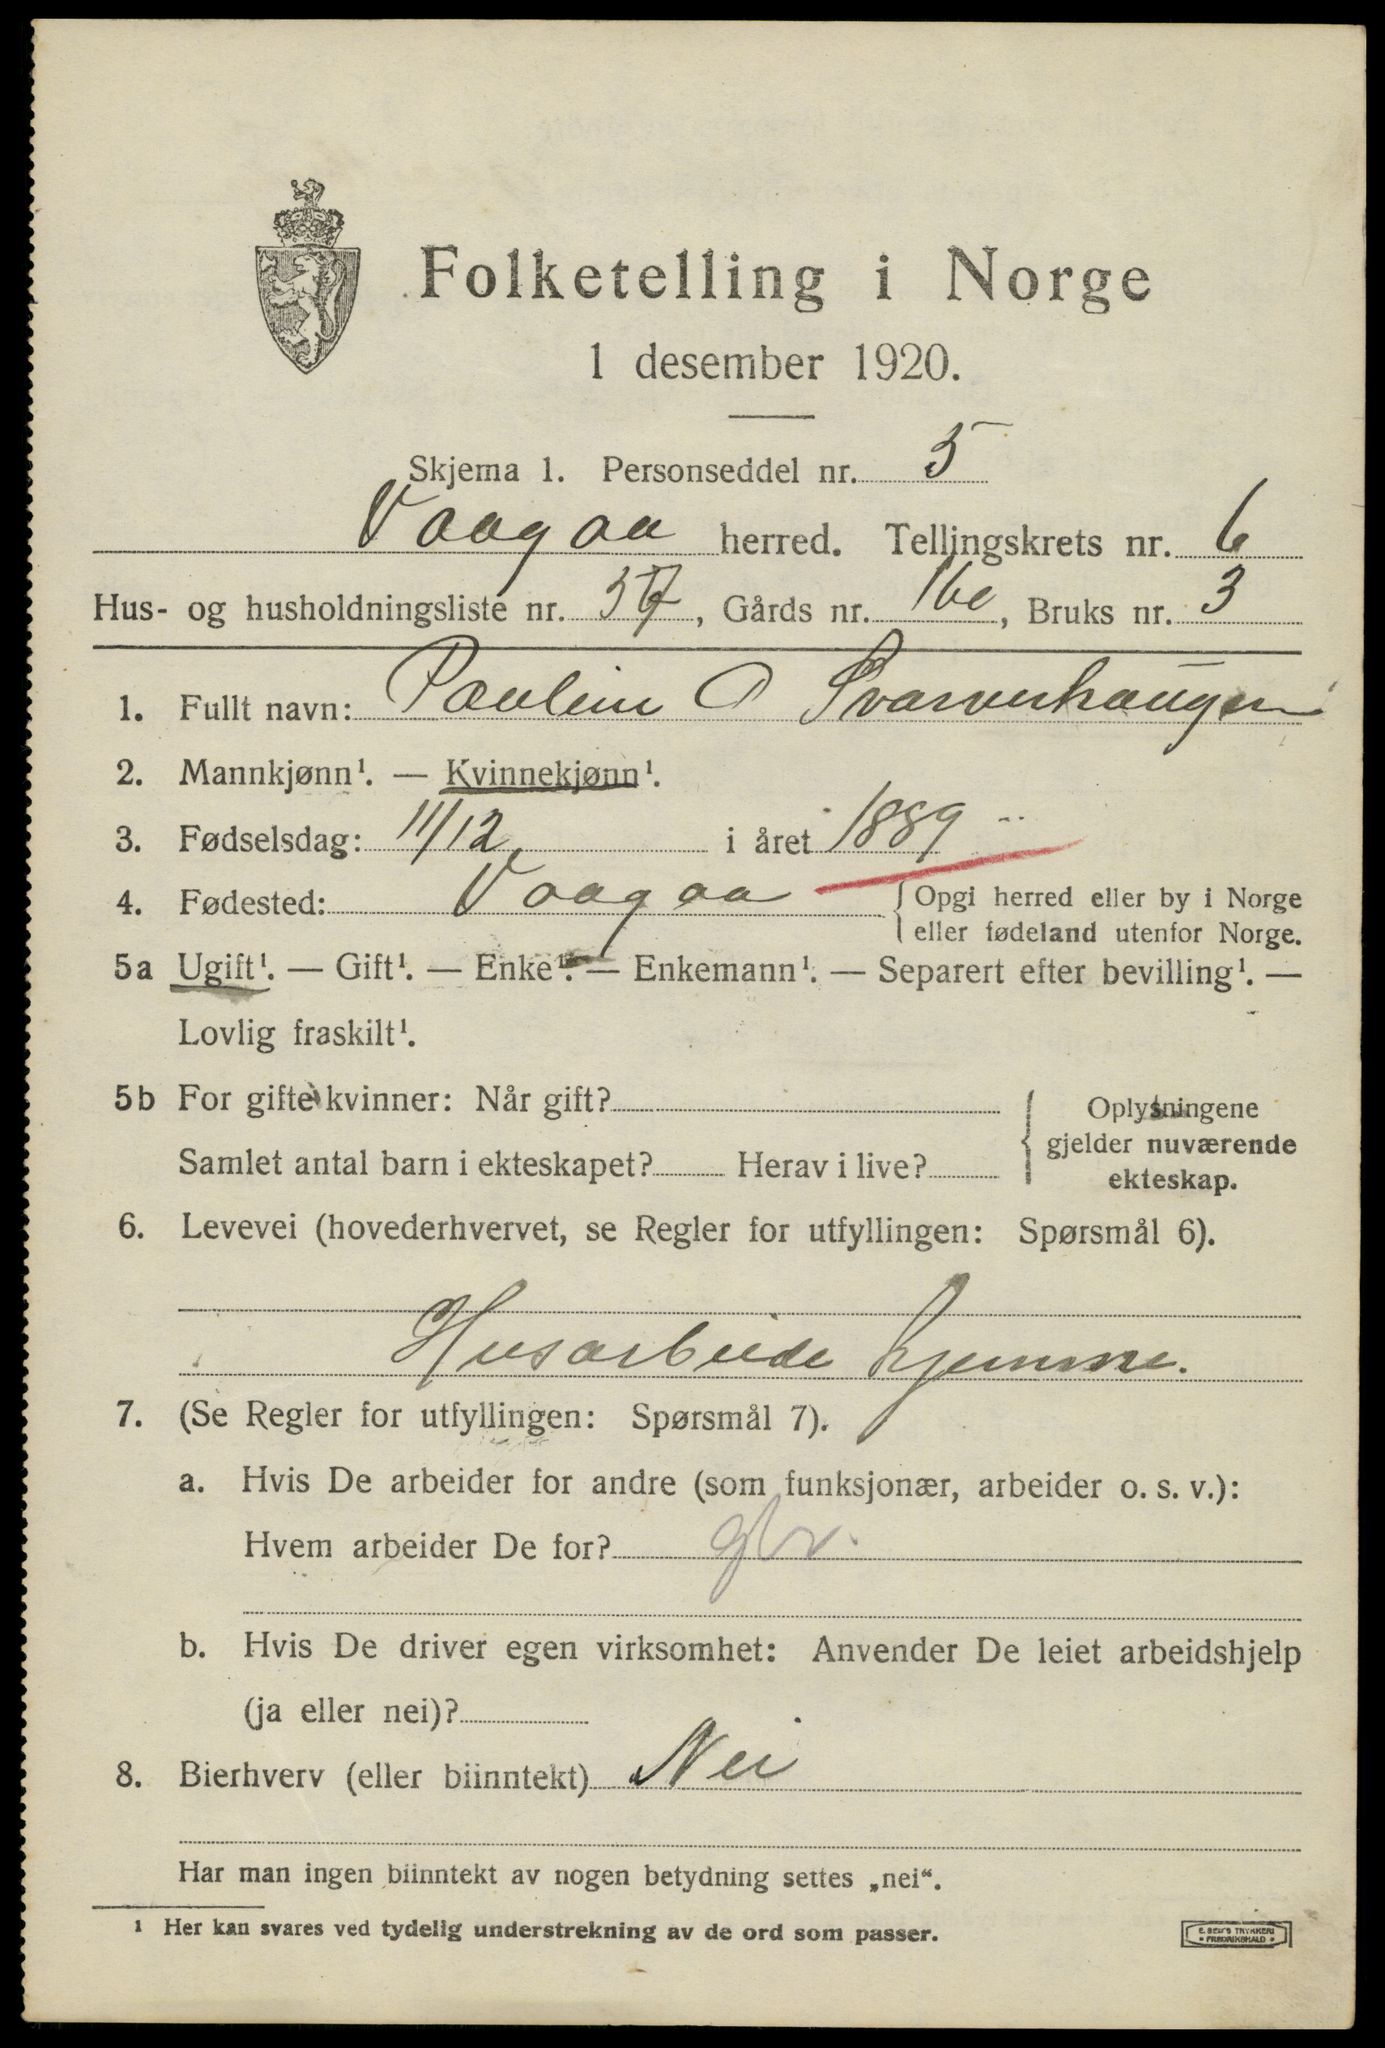 Folketelling i Norge
1 desember 1920.
Skjema 1. Personseddel nr. 5
Vaagaa herred. Tellingskrets nr. 6
Hus- og husholdningsliste nr. 37, Gårds nr. 160, Bruks nr. 3
1. Fullt navn: Pauline O Svarverhaugen
2. Mannkjønn¹. — Kvinnekjønn¹.
3. Fødselsdag: 11/12 i året 1889
4. Fødested: Vaagaa { Opgi herred eller by i Norge
eller fødeland utenfor Norge.
5a Ugift¹. — Gift¹. — Enke¹. — Enkemann¹. — Separert efter bevilling¹. —
Lovlig fraskilt¹.
5b For gifte kvinner: Når gift? { Oplysningene
gjelder nuværende
Samlet antal barn i ekteskapet? Herav i live? ekteskap.
6. Levevei (hovederhvervet, se Regler for utfyllingen: Spørsmål 6).
Husarbeide hjemme.
7. (Se Regler for utfyllingen: Spørsmål 7).
a. Hvis De arbeider for andre (som funksjonær, arbeider o. s. v.):
Hvem arbeider De for?
b. Hvis De driver egen virksomhet: Anvender De leiet arbeidshjelp
(ja eller nei)?
8. Bierhverv (eller biinntekt) Nei
Har man ingen biinntekt av nogen betydning settes „nei“.
¹ Her kan svares ved tydelig understrekning av de ord som passer.
E. SEM'S TRYKKERI
• FREDRIKSHALD •